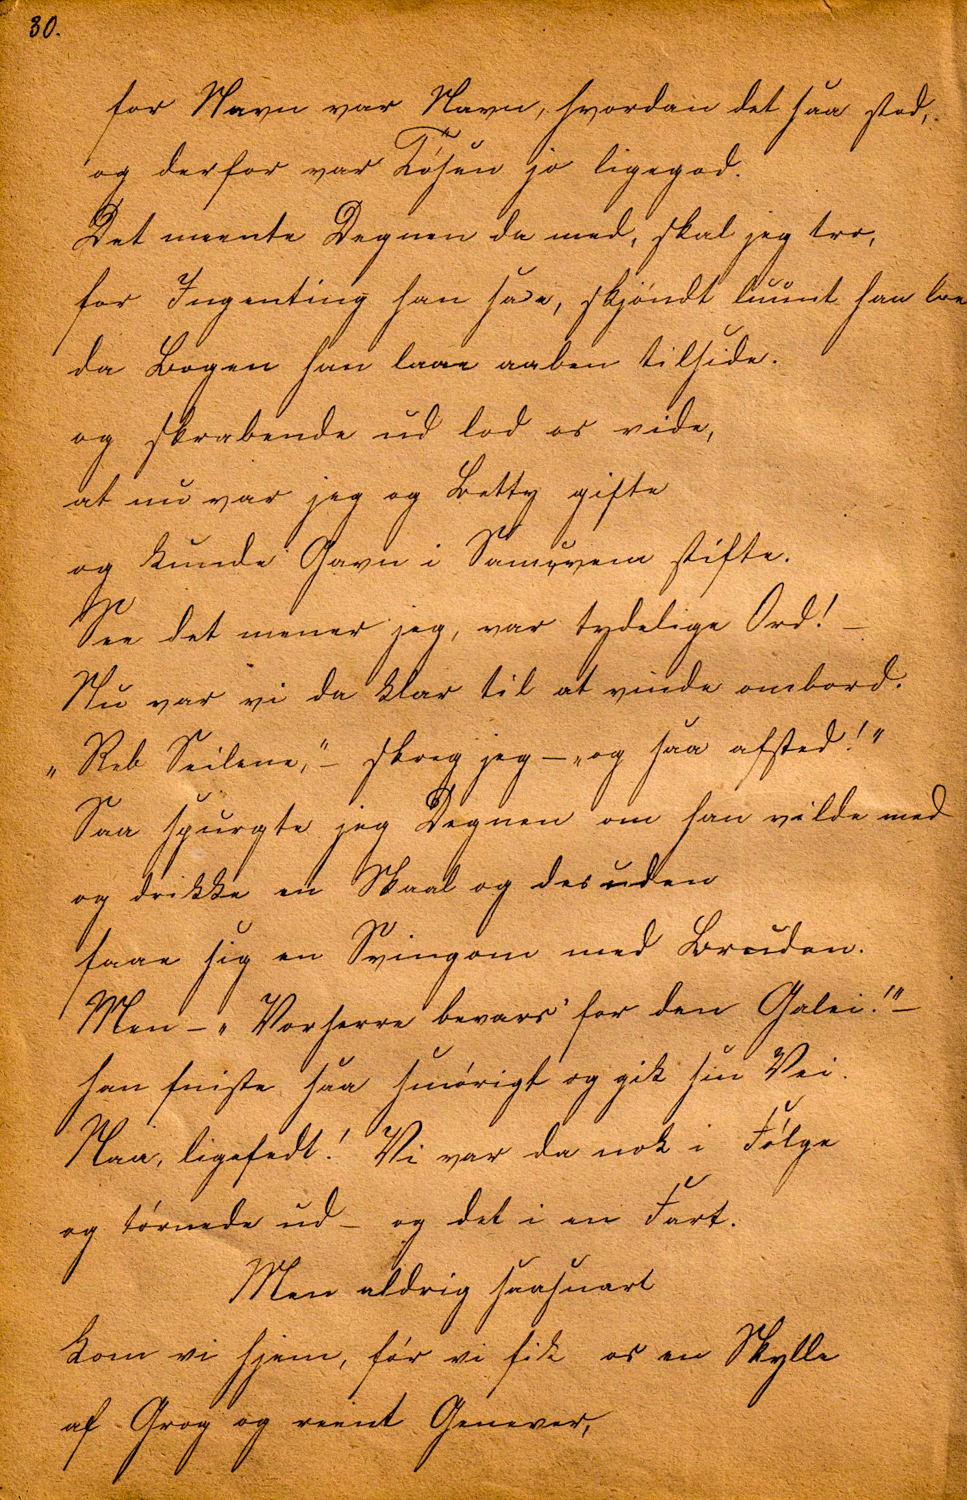 30.
for Navn var Navn, hvordan det saa stod,
og derfor var Tøsen jo ligegod.
Det meente Degnen da med, skal jeg tro,
for Ingenting han sa'e, skjøndt luunt han loe
da Bogen han laae aaben tilside.
og skrabende ud lod os vide,
at nu var jeg og Betty gifte
og kunde Gavn i Samqvem stifte.
See det mener jeg, var tydelige Ord! –
Nu var vi da klar til at vinde ombord.
"Reb Seilene," – skreg jeg – "og saa afsted!"
Saa spurgte jeg Degnen om han vilde med
og drikke en Skaal og desuden
faae sig en Svingom med Bruden.
Men – "Vorherre bevars' for den Galei!" –
han fniste saa smørigt og gik sin Vei.
Naa, ligefedt! Vi var da nok i Følge
og tørnede ud – og det i en Fart.
Men aldrig saasnart
kom vi hjem, før vi fik os en Skylle
af Grog og reent Genever,